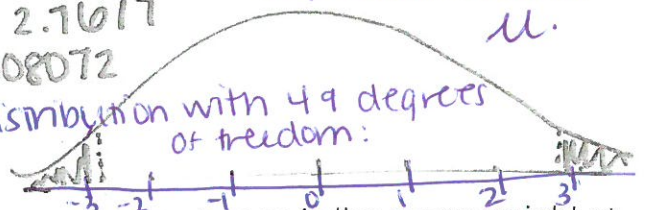 2.7617
μ.
08072
istribution with 49 degrees
of freedom:
-3 -2 -1 0 1 2 3